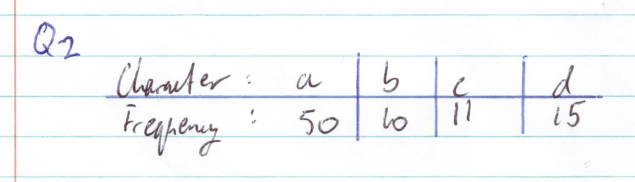 Q2
Character : a b c d
Frequency : 50 10 11 15